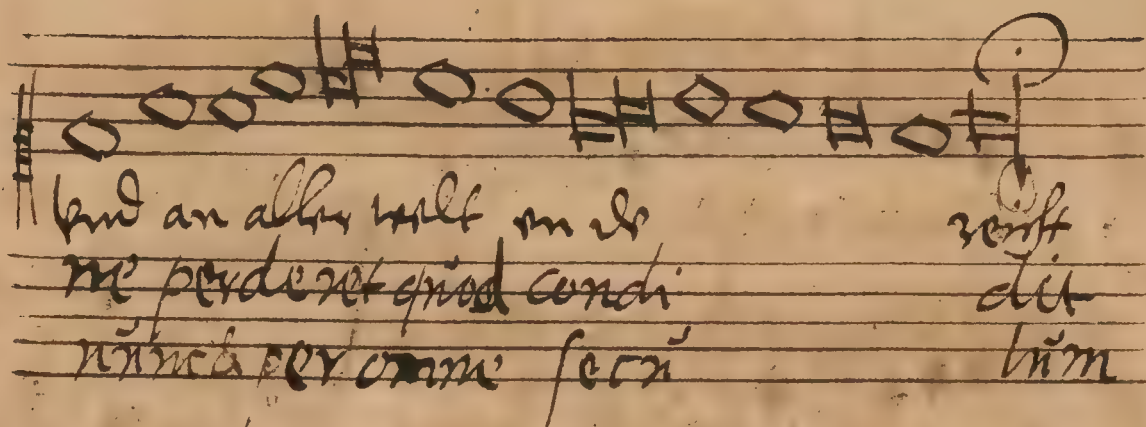 vnd an aller welt en de reicht
ne perderet quod condi dit
nunc & per omne secu lum